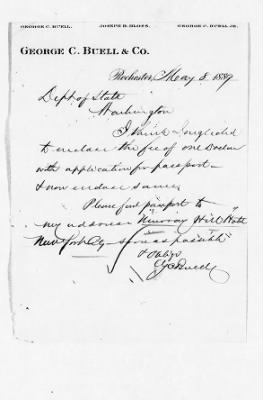 GEORGE C. BUELL. JOSEPH B. BLOSS. GEORGE C. BUELL JR.
GEORGE C. BUELL & CO.
Rochester, May 8, 1889
Dept of State
Washington
I think I neglected
to enclose the fee of one Dollar
with application for passport
& now enclose same
Please send passport to
my address Murray Hill Hotel
New York City soon as possible
& oblige
G C Buell